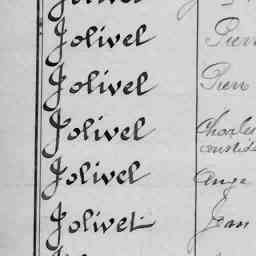 Jolivel
Jolivel Pierr
Jolivel Pierr
Jolivel Charles
Jolivel Ange
Jolivet Jean